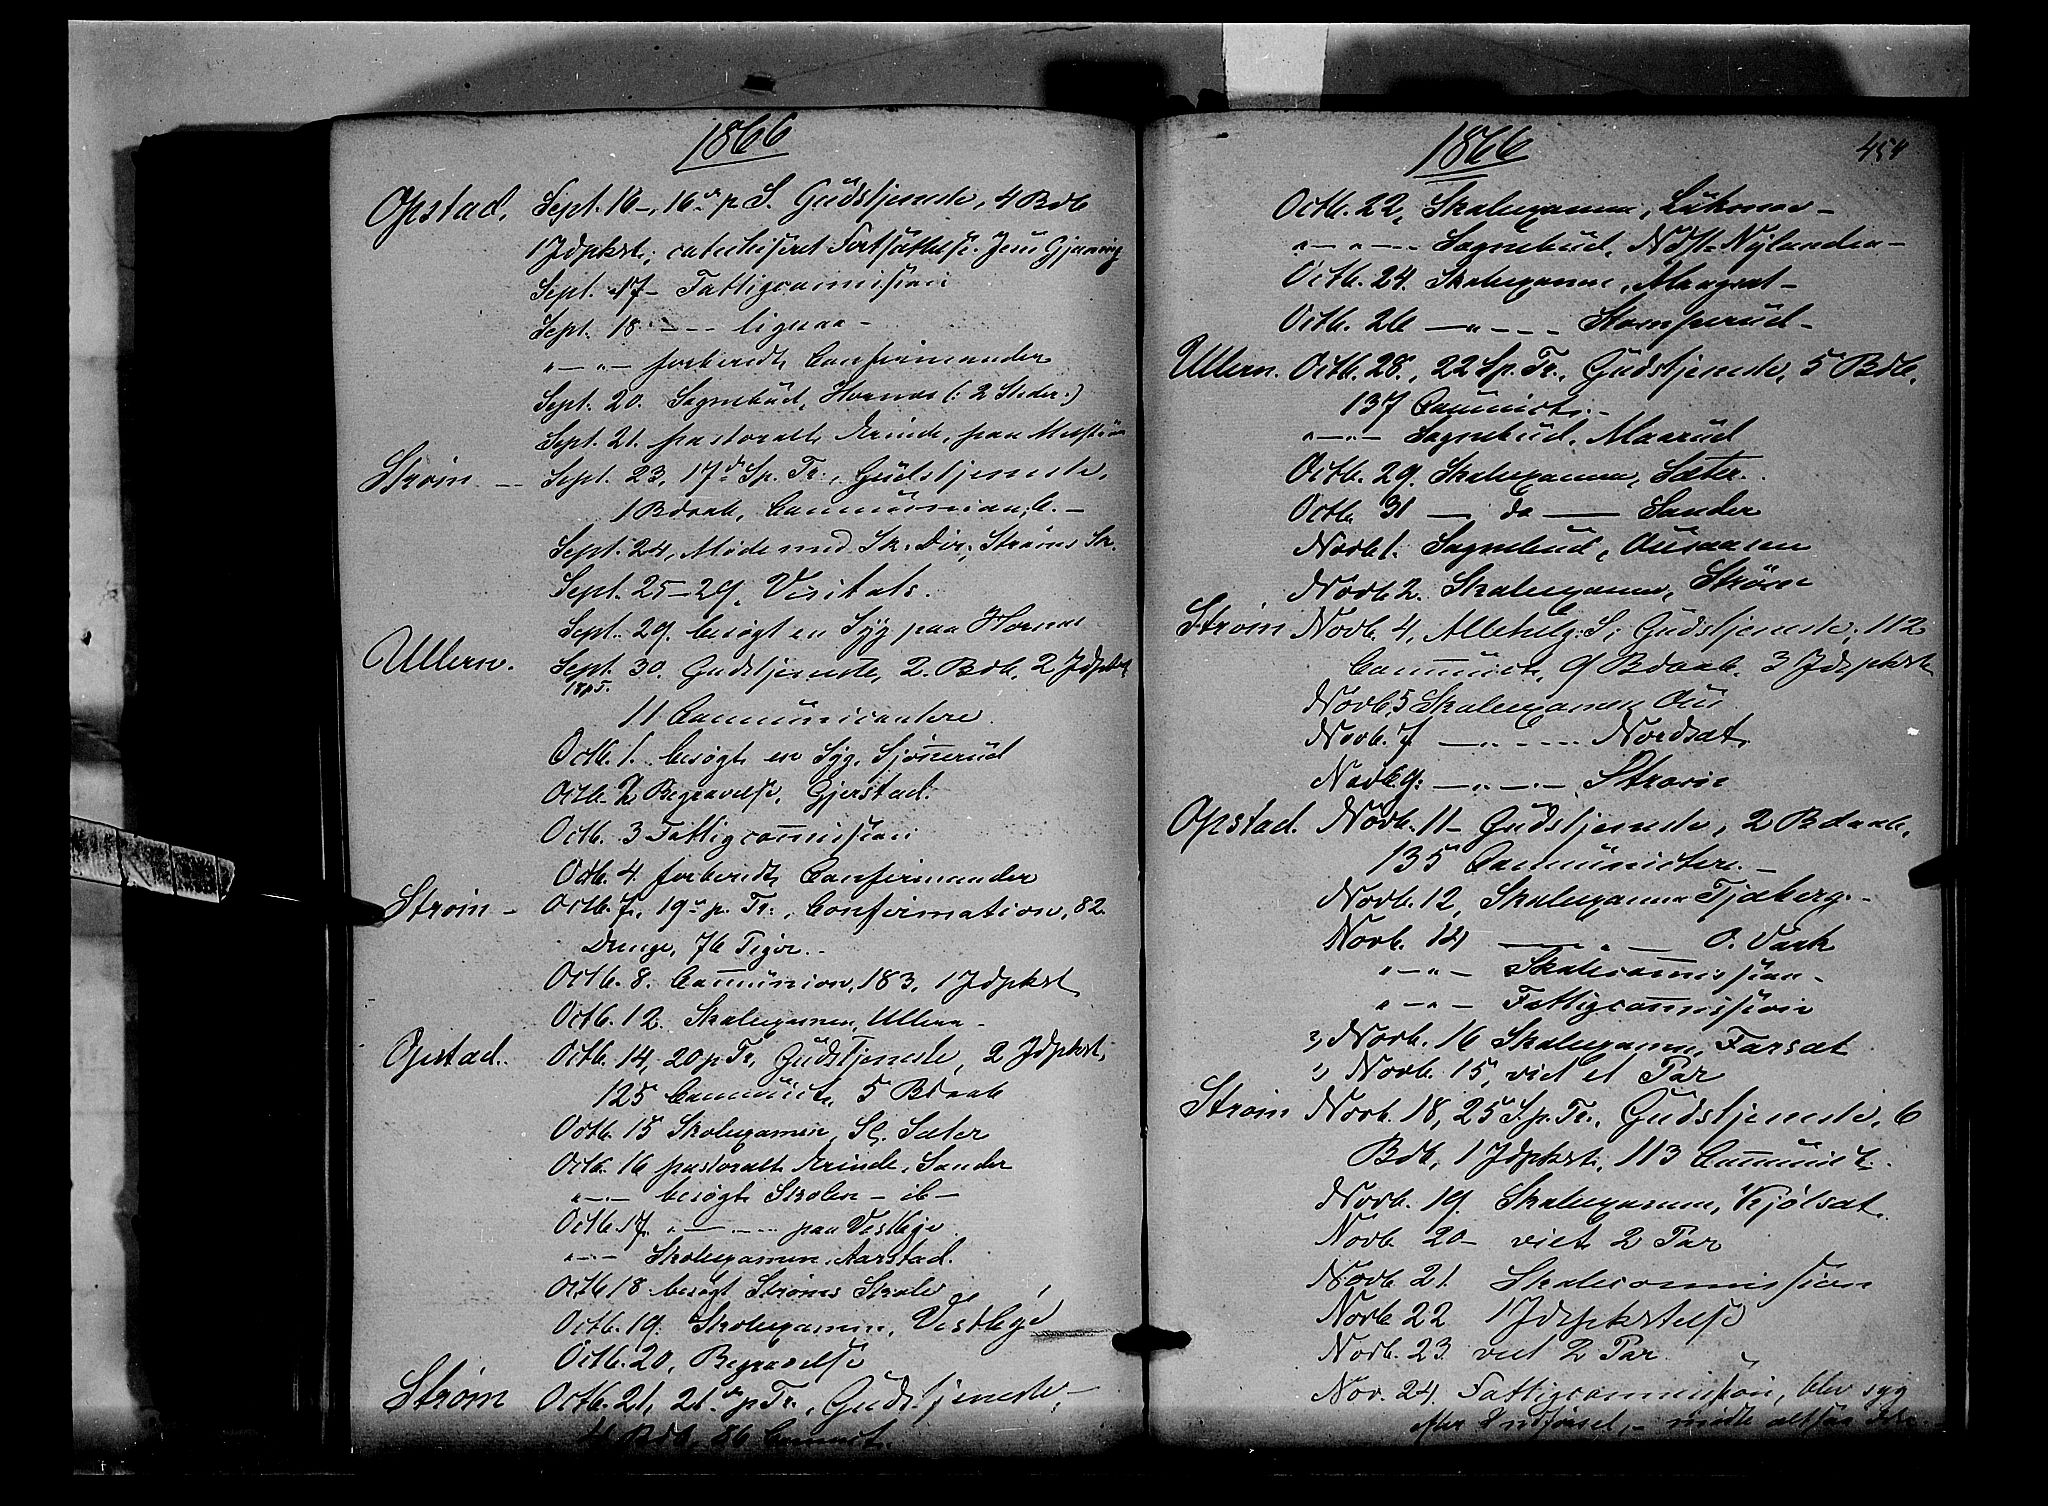 1866
Opstad, Sept. 16, 16de p. S. Gudstjeneste, 4 Bdb
1 Jdpkst., catechiseret Fortsættelse. Jens
Sept. 17 - Fattigcommission
Sept. 18 - - - ligesaa -
" - " - forberedt Confirmander
Sept. 20. Sognebud, Hornæs (: 2 Steder :)
Sept. 21. pastoralt Erinde, paa
Strøm - Sept. 23, 17de S.p. Tr., Gudstjeneste,
1 Bdaab, Communion, 6. -
Sept. 24, Møde med Sk. Dir., Strøms Sk.
Sept. 25-29, Visitats.
Sept. 29. besøgt en Syg paa Hornæs
Ullern. Sept. 30. Gudstjeneste, 2 Bdb, 2 Jdpkst
11 Communicantere.
Octb. 1. besøgt en Syg, Sjønerud
Octb. 2 Begravelse, Gjerstad.
Octb. 3 Fattigcommission
Octb. 4. forberedt Confirmander
Strøm - Octb. 7, 19de p. Tr., Confirmation, 82
Drenge, 76 Piger.
Octb. 8. Communion, 183, 1 Jdpkst
Octb. 12. Skoleexamen, Ullern -
Opstad. Octb. 14, 20 p Tr, Gudstjeneste, 2 Jdpkst,
125 Communict, 5 Bdaab
Octb. 15 Skoleexamen, Sl. Sæter
Octb. 16 pastoralt Erinde, Sander
" - " - besøgt Skolen - ib -
Octb. 17. " - - - - paa Vestbye
" - " - Skoleexamen, Aarstad.
Octb 18 besøgt Strøms Skole
Octb. 19. Skoleexamen, Vestbye
Octb. 20, Begravelse
Strøm Octb. 21, 21de p Tr., Gudstjeneste,
4 Bdb, 86 Commct.
1866
454
Octb. 22, Skoleexamen,
" - " - - - Sognebud, Ndr Nylænden -
Octb. 24. Skoleexamen,
Octb. 26 - " - - - Stomperud -
Ullern. Octb. 28., 22 S.p. Tr., Gudstjeneste, 5 Bdb,
137 Communict. -
" - " - Sognebud, Maarud
Octb. 29. Skoleexamen, Sæter.
Octb. 31 - do - Sander
Novb. 1. Sognebud,
Novb. 2. Skoleexamen, Strøm
Strøm Novb. 4, Allehelg. S., Gudstjeneste, 112
Communict, 9 Bdaab, 3 Jdpkst
Novb. 5 Skoleexamen Ous
Novb. 7 - " - - - - Nordsæt.
Novb. 9. - " - - - Strøm
Opstad. Novb. 11 - Gudstjeneste, 2 Bdaab,
135 Communictere. -
Novb. 12, Skoleexamen Tjaberg. -
Novb. 14 - " - O. Værk
" - " - Skolecommission -
" - " - Fattigcommission
2) Novb. 16 Skoleexamen, Farsæt
1) Novb. 15, viet et Par
Strøm Novb. 18, 25 S.p. Tr., Gudstjeneste, 6
Bdb, 1 Jdpkst, 113 Communict.
Novb. 19. Skoleexamen, Kjølsæt.
Novb. 20 - viet 2 Par
Novb. 21 Skolecommission
Novb 22 1 Jdpkstelse
Novb. 23 viet 2 Par
Nov. 24. Fattigcommission, blev syg
- mødte altsaa ikke. -